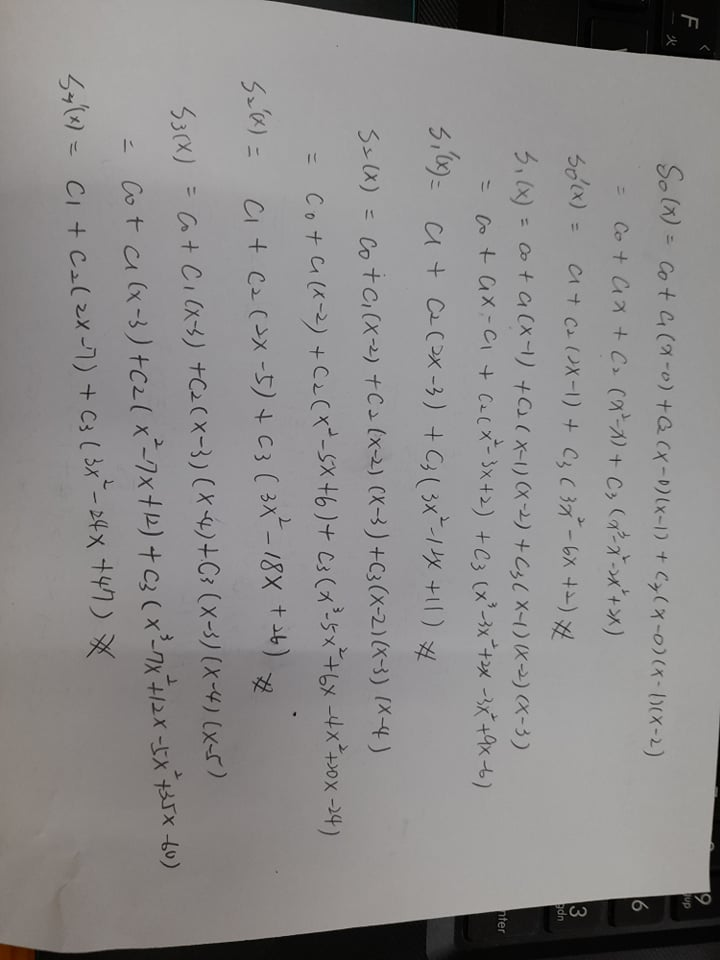 S0(x) = C0 + C1(x-0) + C2(x-0)(x-1) + C3(x-0)(x-1)(x-2)
= C0 + C1x + C2(x²-x) + C3(x³-x²-2x²+2x)
S0'(x) = C1 + C2(2x-1) + C3(3x²-6x+2) ※
S1(x) = C0 + C1(x-1) + C2(x-1)(x-2) + C3(x-1)(x-2)(x-3)
= C0 + C1x - C1 + C2(x²-3x+2) + C3(x³-3x²+2x-3x²+9x-6)
S1'(x) = C1 + C2(2x-3) + C3(3x²-12x+11) ※
S2(x) = C0 + C1(x-2) + C2(x-2)(x-3) + C3(x-2)(x-3)(x-4)
= C0 + C1(x-2) + C2(x²-5x+6) + C3(x³-5x²+6x-4x²+20x-24)
S2'(x) = C1 + C2(2x-5) + C3(3x²-18x+26) ※
S3(x) = C0 + C1(x-3) + C2(x-3)(x-4) + C3(x-3)(x-4)(x-5)
= C0 + C1(x-3) + C2(x²-7x+12) + C3(x³-7x²+12x-5x²+35x-60)
S4'(x) = C1 + C2(2x-7) + C3(3x²-24x+47) ※
F
火
9
6
3